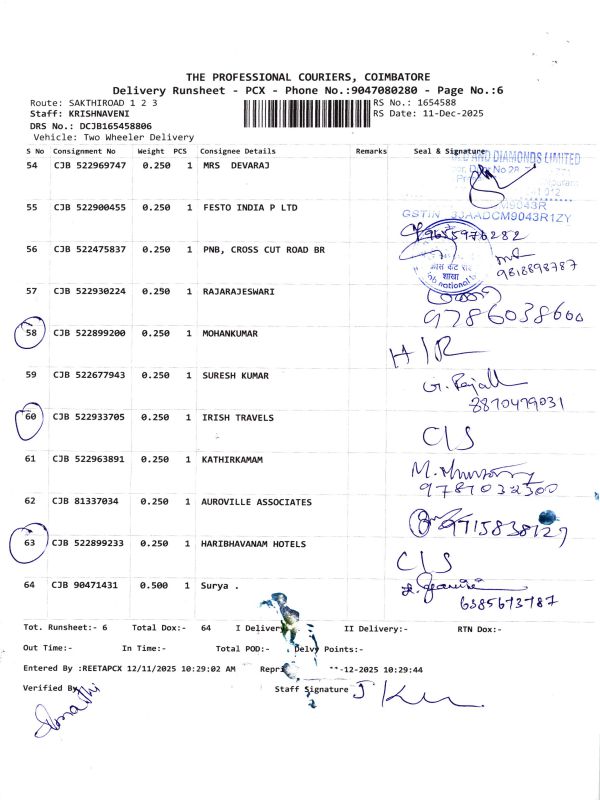 THE PROFESSIONAL COURIERS, COIMBATORE
Delivery Runsheet - PCX - Phone No.:9047080280 - Page No.:6
Route: SAKTHIROAD 1 2 3 RS No.: 1654588
Staff: KRISHNAVENI RS Date: 11-Dec-2025
DRS No.: DCJB165458806
Vehicle: Two Wheeler Delivery
S No Consignment No Weight PCS Consignee Details Remarks Seal & Signature
54 CJB 522969747 0.250 1 MRS DEVARAJ
AND DIAMONDS LIMITED
GSTIN 33AADCM9043R1ZY
55 CJB 522900455 0.250 1 FESTO INDIA P LTD
9655976282
56 CJB 522475837 0.250 1 PNB, CROSS CUT ROAD BR
क्रास कट रोड
शाखा
national b
9812898787
57 CJB 522930224 0.250 1 RAJARAJESWARI
9786038600
58 CJB 522899200 0.250 1 MOHANKUMAR
H/R
59 CJB 522677943 0.250 1 SURESH KUMAR
8870479031
60 CJB 522933705 0.250 1 IRISH TRAVELS
C/S
61 CJB 522963891 0.250 1 KATHIRKAMAM
9787032500
62 CJB 81337034 0.250 1 AUROVILLE ASSOCIATES
9715838127
63 CJB 522899233 0.250 1 HARIBHAVANAM HOTELS
C/S
64 CJB 90471431 0.500 1 Surya .
6385673787
Tot. Runsheet:- 6 Total Dox:- 64 I Delivery II Delivery:- RTN Dox:-
Out Time:- In Time:- Total POD:- Delvy Points:-
Entered By :REETAPCX 12/11/2025 10:29:02 AM -12-2025 10:29:44
Verified By
Staff Signature